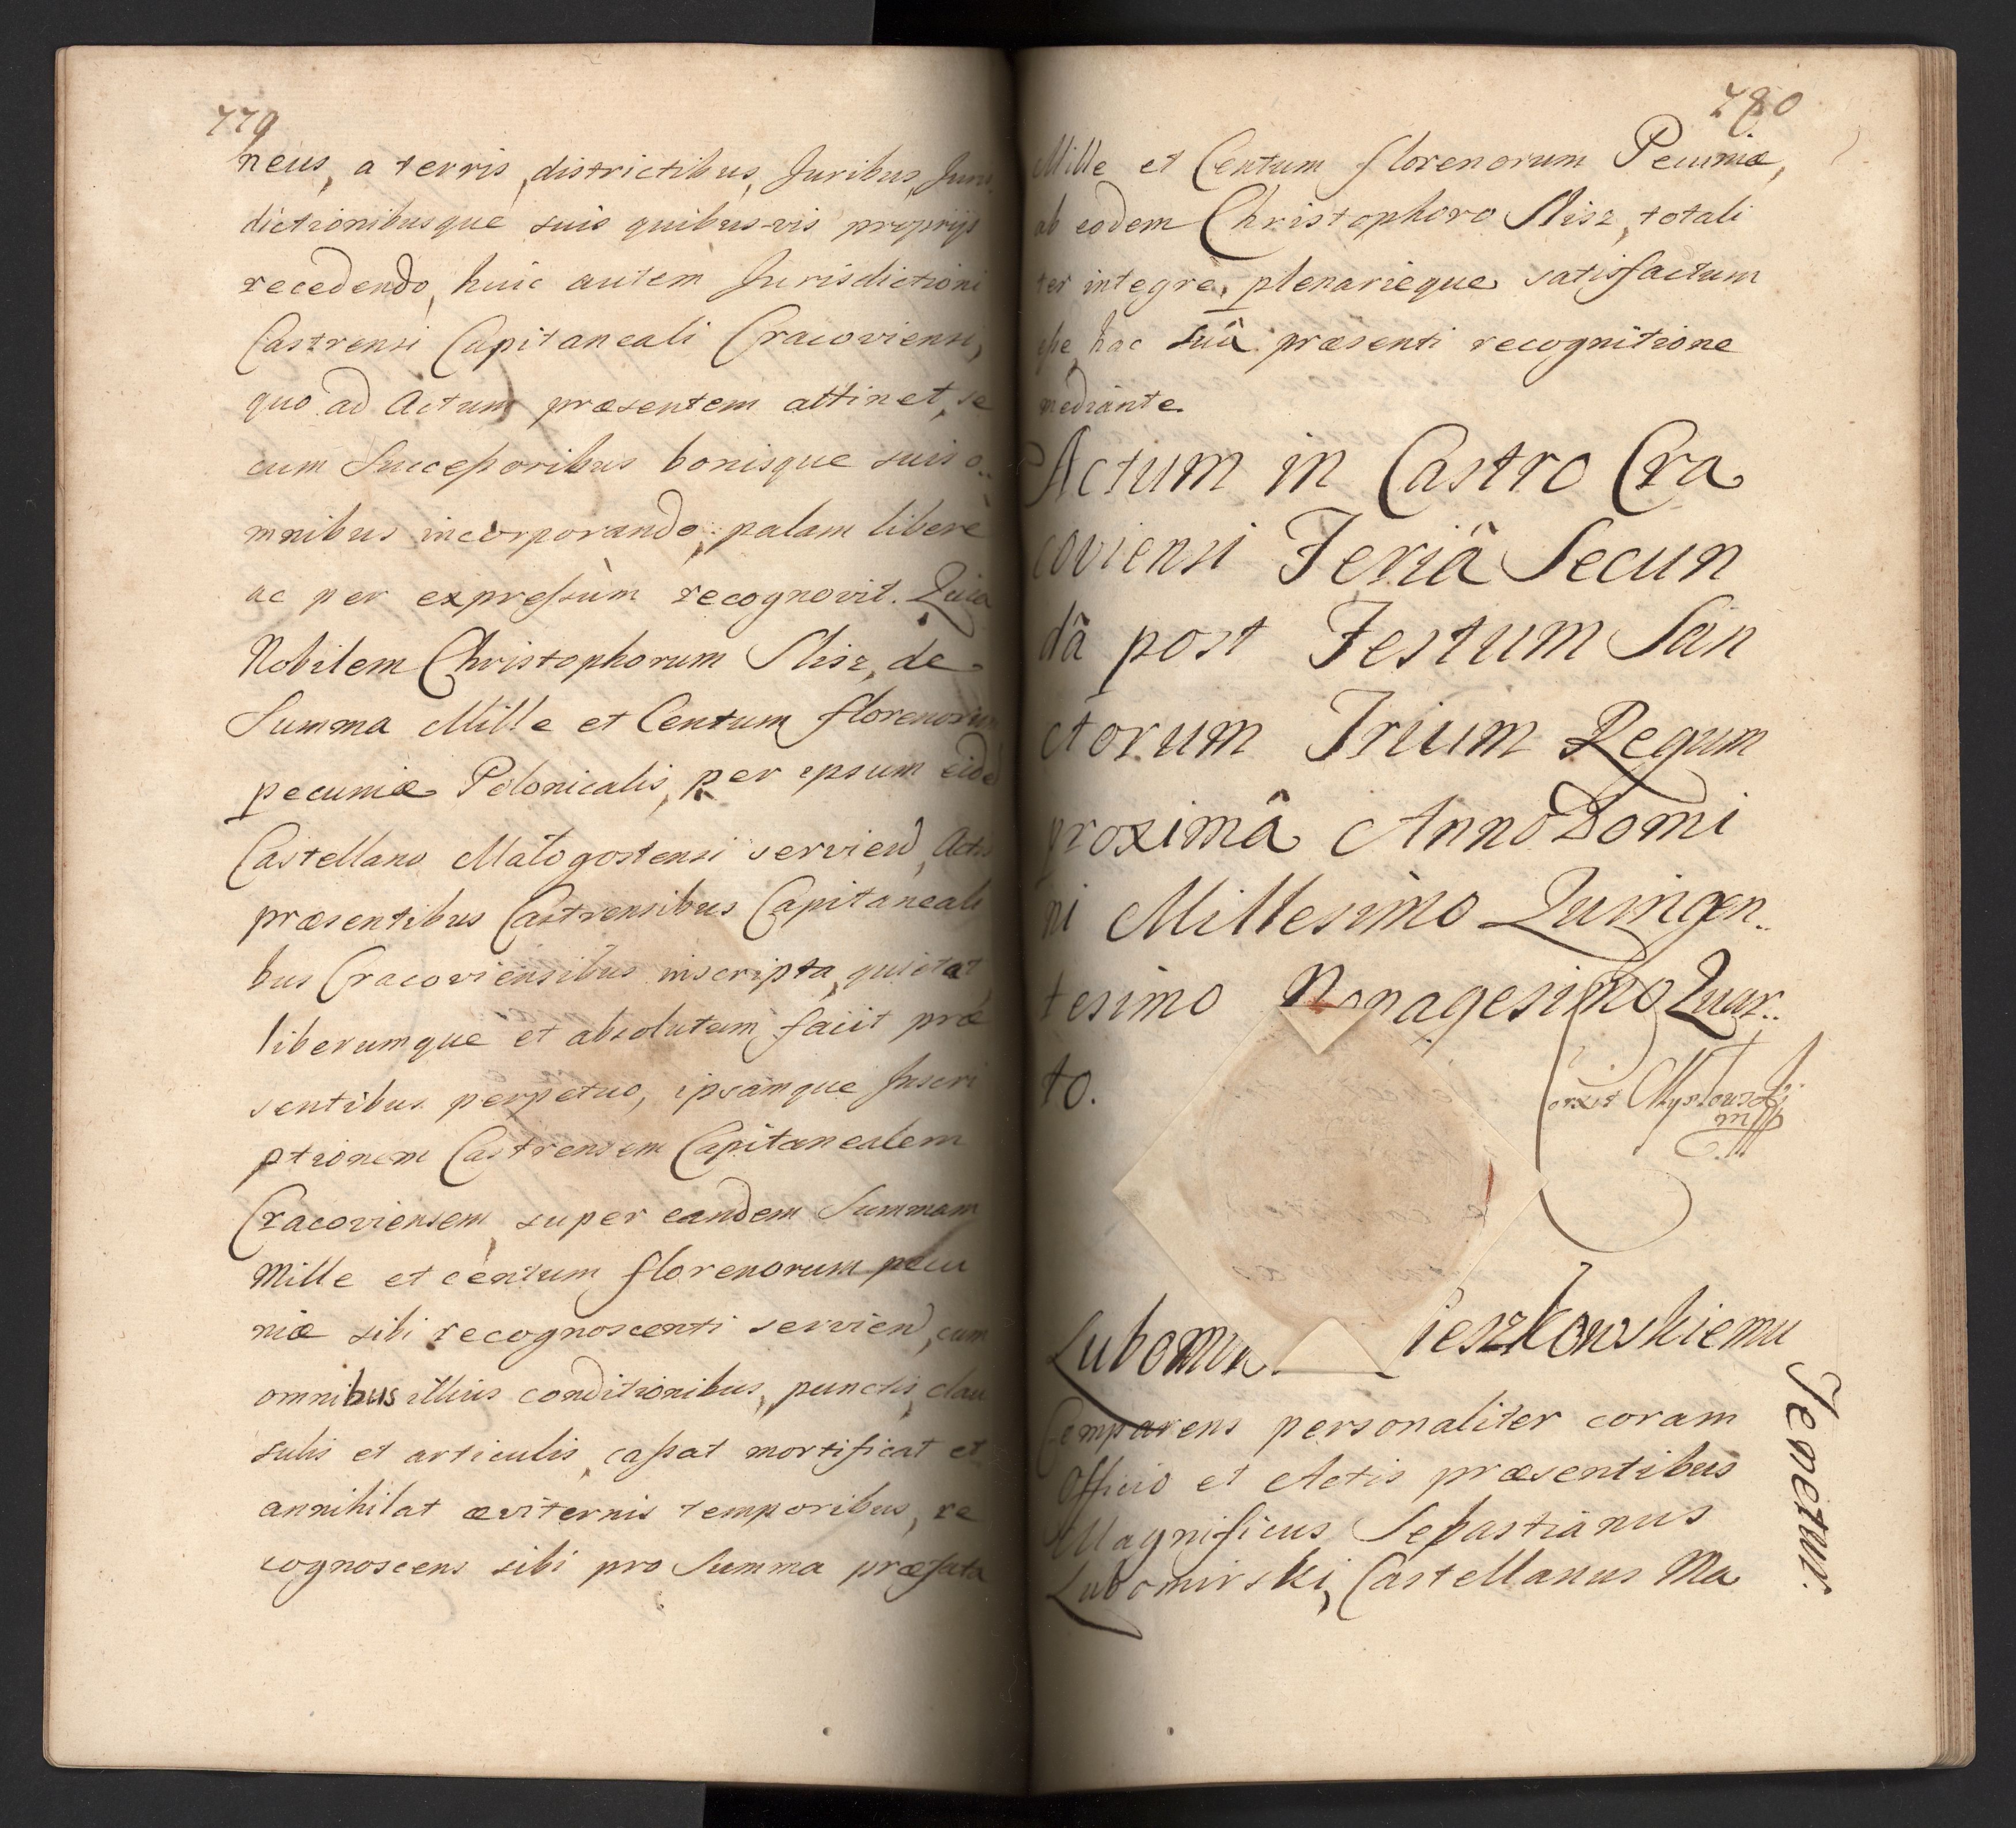 779
neus, a terris, districtibus, Juribus, Juris
dictionibusque suis quibus-vis proprijs
recedendo, huic autem Jurisdictioni
Castrensi Capitaneali Cracoviensi,
quo ad Actum præsentem attinet, se
cum Succeßoribus bonisque suis o..
mnibus incorporando: palam liberè
ac per expreſsum recognovit. Quia
Nobilem Christophorum Slisz, de
Summa Mille et Centum florenorum
pecuniæ Polonicalis, per ipsum eid
Castellano Małogostensi servien, Actis
præsentibus Castrensibus Capitaneali
bus Cracoviensibus inscripta, quietat,
liberumque et absolutum facit præ
sentibus perpetuo, ipsamque Inscri
ptionem Castrensem Capitanealem
Cracoviensem, super eandem Summam
Mille et centum florenorum pecu
niæ sibi recognoscenti servien, cum
omnibus illius conditionibus, punctis, clau
sulis et articulis, caßat mortificat et
annihilat æviternis temporibus, re
cognoscens sibi pro Summa præfata
780
Mille et Centum florenorum Pecuniæ,
ab eodem Christophoro Slisz, totali
ter integre, plenarieque satisfactum
eße, hac suâ præsenti recognitione
mediante.
Actum in Castro Cra
coviensi Feriâ Secun
dâ post Festum San
ctorum Trium Regum
proximâ Anno Domi
ni Millesimo Quingen..
tesimo Nonagesimo Quar..
to.
Lubomir ieszkowskiemu
Comparens personaliter coram
Officio et Actis præsentibus
Magnificus Sebastianus
Lubomirski, Castellanus Ma
Tenetur.